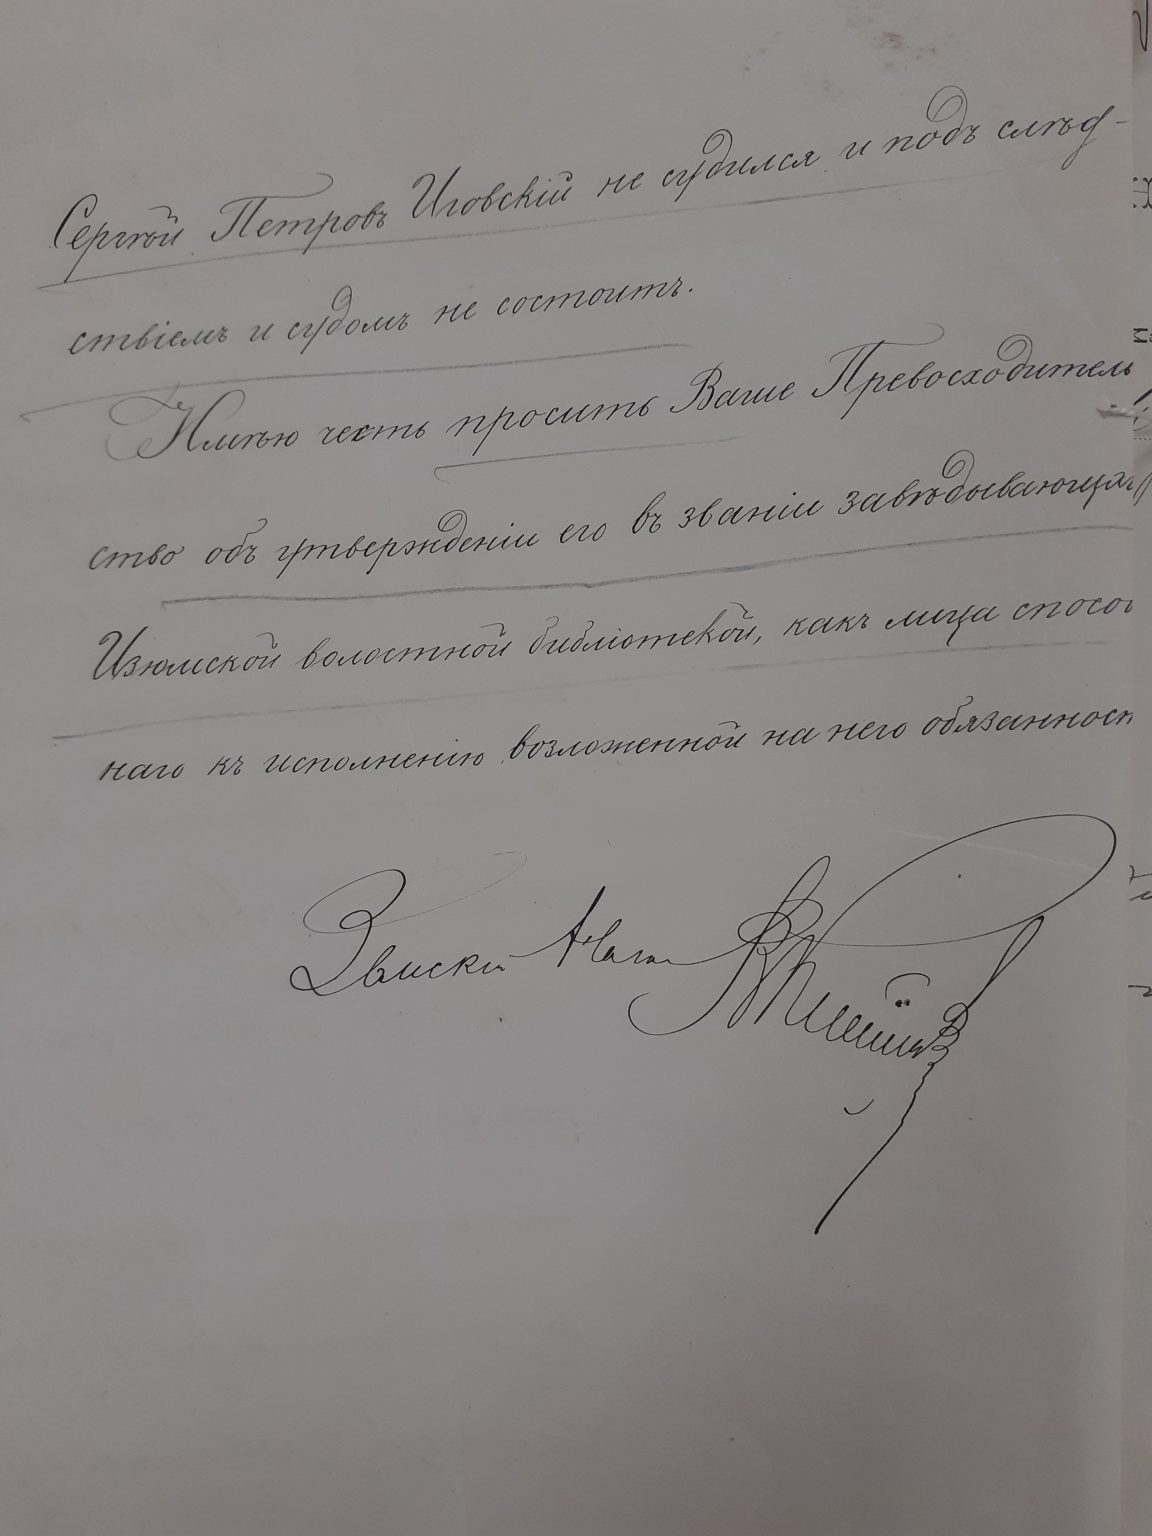 Сергѣй Петровъ Иговскій не судился и подъ слѣд-
ствіемъ и судомъ не состоитъ.
Имѣю честь просить Ваше Превосходитель
ство объ утвержденіи его въ званіи завѣдывающаг
Изюмской волостной библіотекой, какъ лица способ
наго къ исполненію возложенной на него обязанност
Земскій Начал